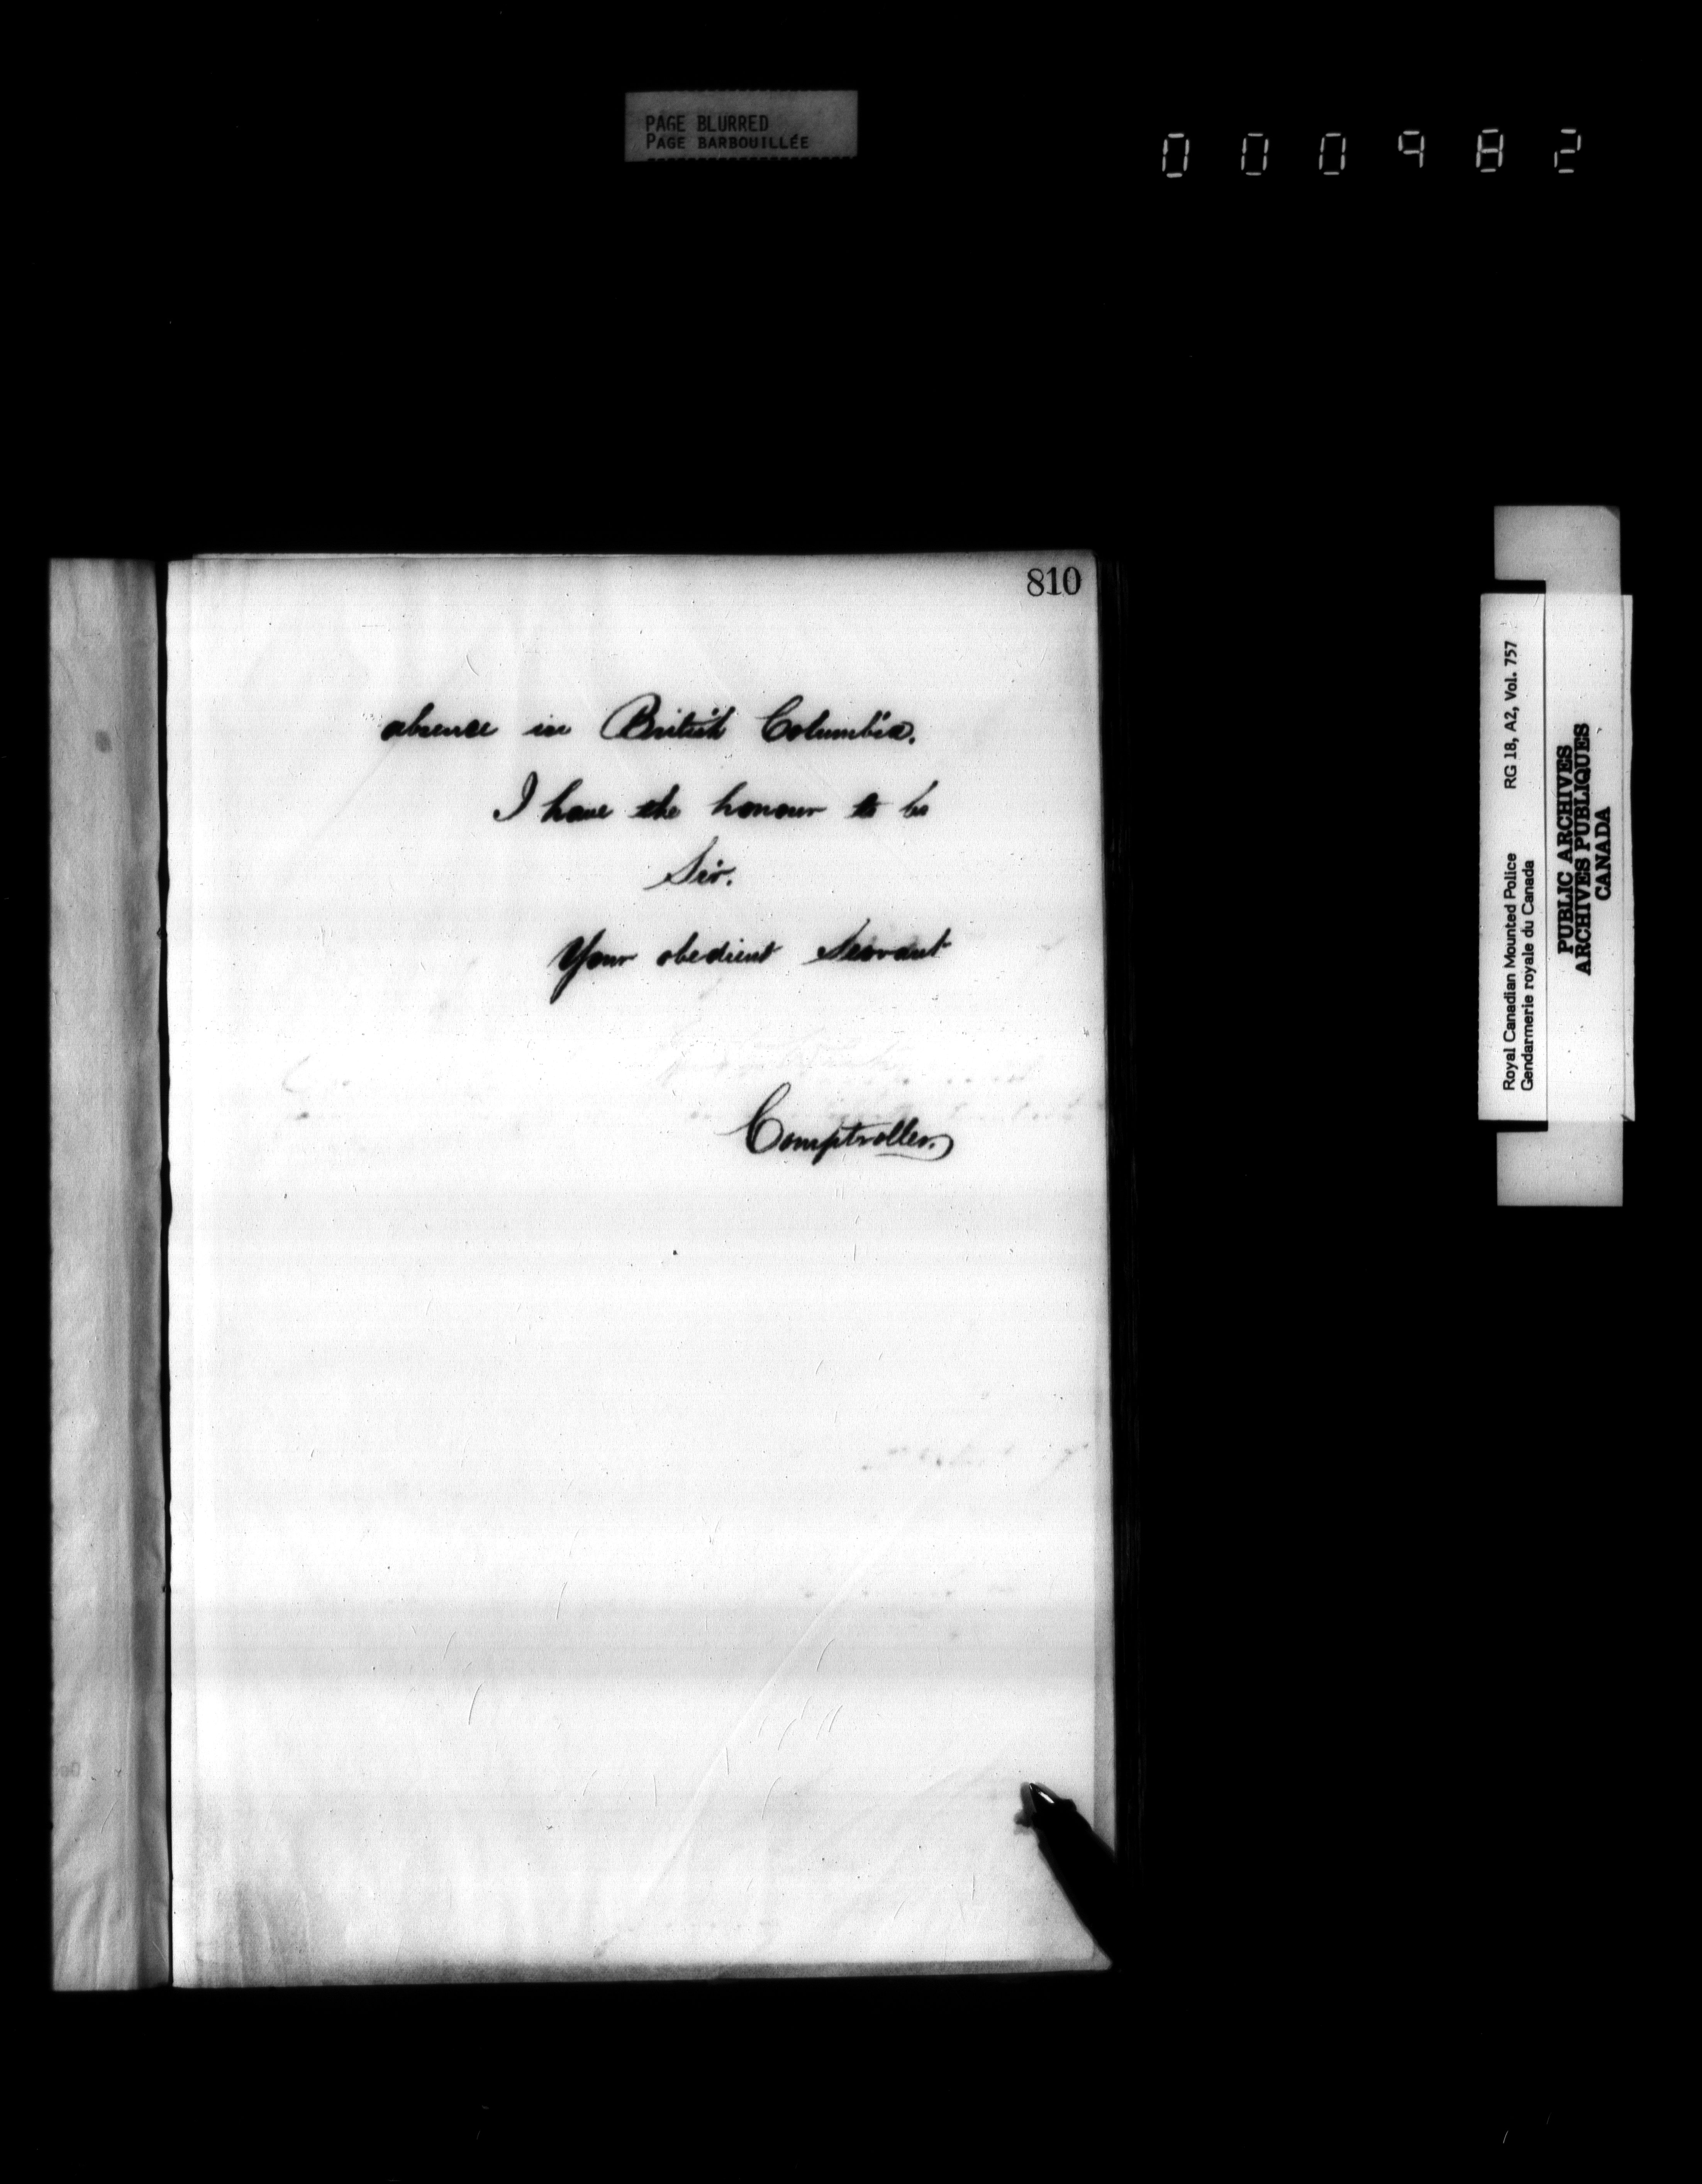 PAGE BLURRED
PAGE BARBOUILLÉE
000982
810
absence in British Columbia.
I have the honour to be
Sir.
Your obedient Servant
Comptroller.
Royal Canadian Mounted Police RG 18, A2, Vol. 757
Gendarmerie royale du Canada
PUBLIC ARCHIVES
ARCHIVES PUBLIQUES
CANADA